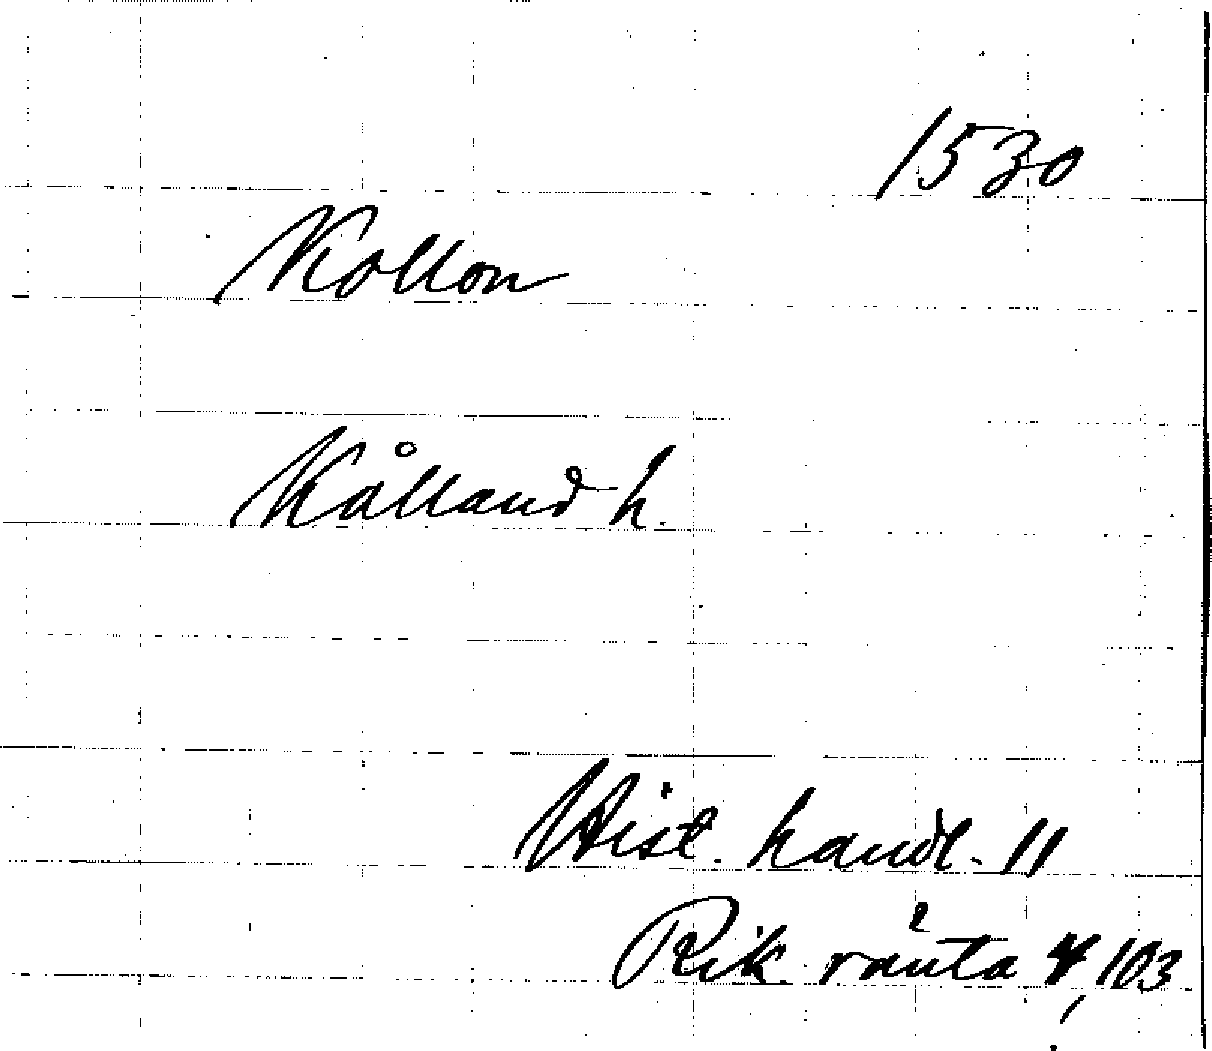 1530
Kollon
Kålland h.
Hist. handl. 11
Rik. ränta 4, 103